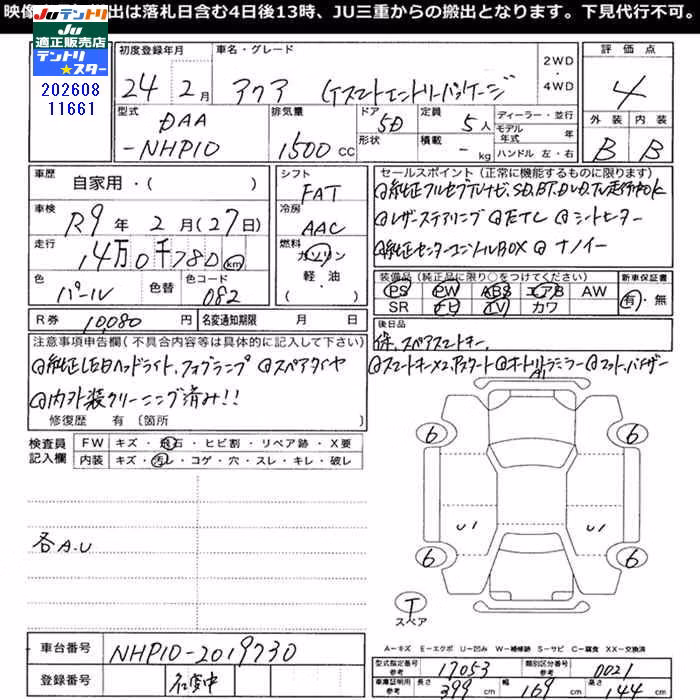 映像 出は落札日含む4日後13時、JU三重からの搬出となります。下見代行不可。
JUテントリ
JU
適正販売店
テントリ
★スター
202608
11661
初度登録年月 車名・グレード 2WD・4WD 評価点
24年2月 アクア Lｲスマートエントリーパッケージ 4
型式 排気量 ドア形状 定員 ディーラー・並行 外装 内装
DAA-NHP10 1500cc 5D 5人 モデル年式 年 B B
積載 - kg ハンドル 左・右
車歴 自家用・( ) シフト FAT
車検 R9年2月(27日) 冷房 AAC
走行 14万0千780km 燃料 ガソリン 軽・油( )
色 パール 色替 色コード 082
R券 10,080円 名変通知期限 月 日
セールスポイント(正常に機能するものに限ります)
@純正フルセグTVナビ、SD、BT、DVD、TV走行中ok
@レザーステアリング @ETC @シートヒーター
@純正センターコンソールBOX @ナノイー
装備品(純正品に限り○をつけてください) 新車保証書
PS PW ABS エアB AW 有・無
SR ナビ TV カワ
後日品
保、スペアスマートキー、
注意事項申告欄(不具合内容等は具体的に記入して下さい)
@純正LEDヘッドライト、フォグランプ @スペアタイヤ @スマートキーx2、Pスタート @オートリトラミラー @マット、バイザー
@内外装クリーニング済み!!
修復歴 有〔箇所 〕
検査員記入欄 FW キズ・飛石・ヒビ割・リペア跡・X要
内装 キズ・汚レ・コゲ・穴・スレ・キレ・破レ
各A.U
6 6
U1 U1
6 6
T
スペア
A−キズ E−エクボ U−凹み W−補修跡 S−サビ C−腐食 XX−交換済
車台番号 NHP10-2019730
登録番号 在庫中
型式指定番号 参考 17053 類別区分番号 参考 0021
車庫証明用 参考 長さ 399 cm 幅 169 cm 高さ 144 cm